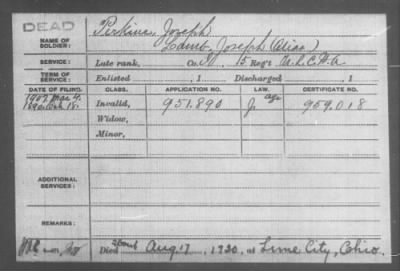 DEAD
NAME OF SOLDIER: Perkins, Joseph
Lamb, Joseph (Alias)
SERVICE: Late rank, Co. , 15 Reg't U.S.C.H.A.
TERM OF SERVICE: Enlisted , 1 Discharged , 1
DATE OF FILING. CLASS. APPLICATION NO. LAW. CERTIFICATE NO.
1907 Mar 4. Invalid, 951.890 J age 959.018
Widow,
Minor,
ADDITIONAL SERVICES:
REMARKS:
Died about Aug 17, 1920, at Lime City, Ohio.